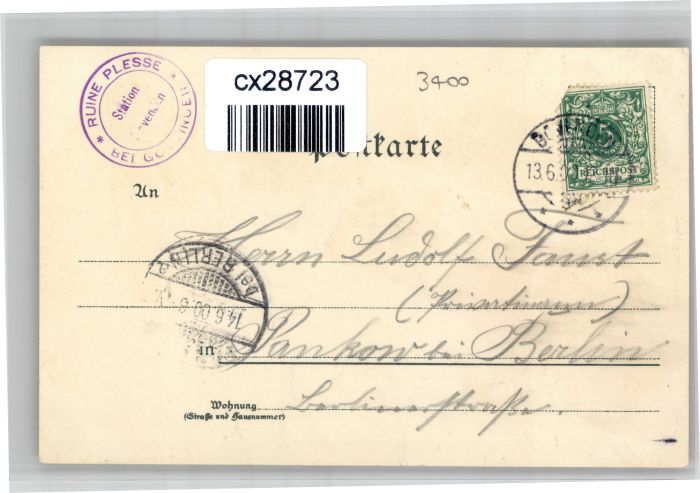 * RUINE PLESSE *
BEI GÖTTINGEN
Station
cx28723
3400
Postkarte
13.6.00
5
REICHSPOST
An
Herrn Ludolf Faust
bei BERLIN
14.6.00
(Privatmann)
in Pankow bei Berlin
Wohnung
(Straße und Hausnummer)
Berlinerstraße.